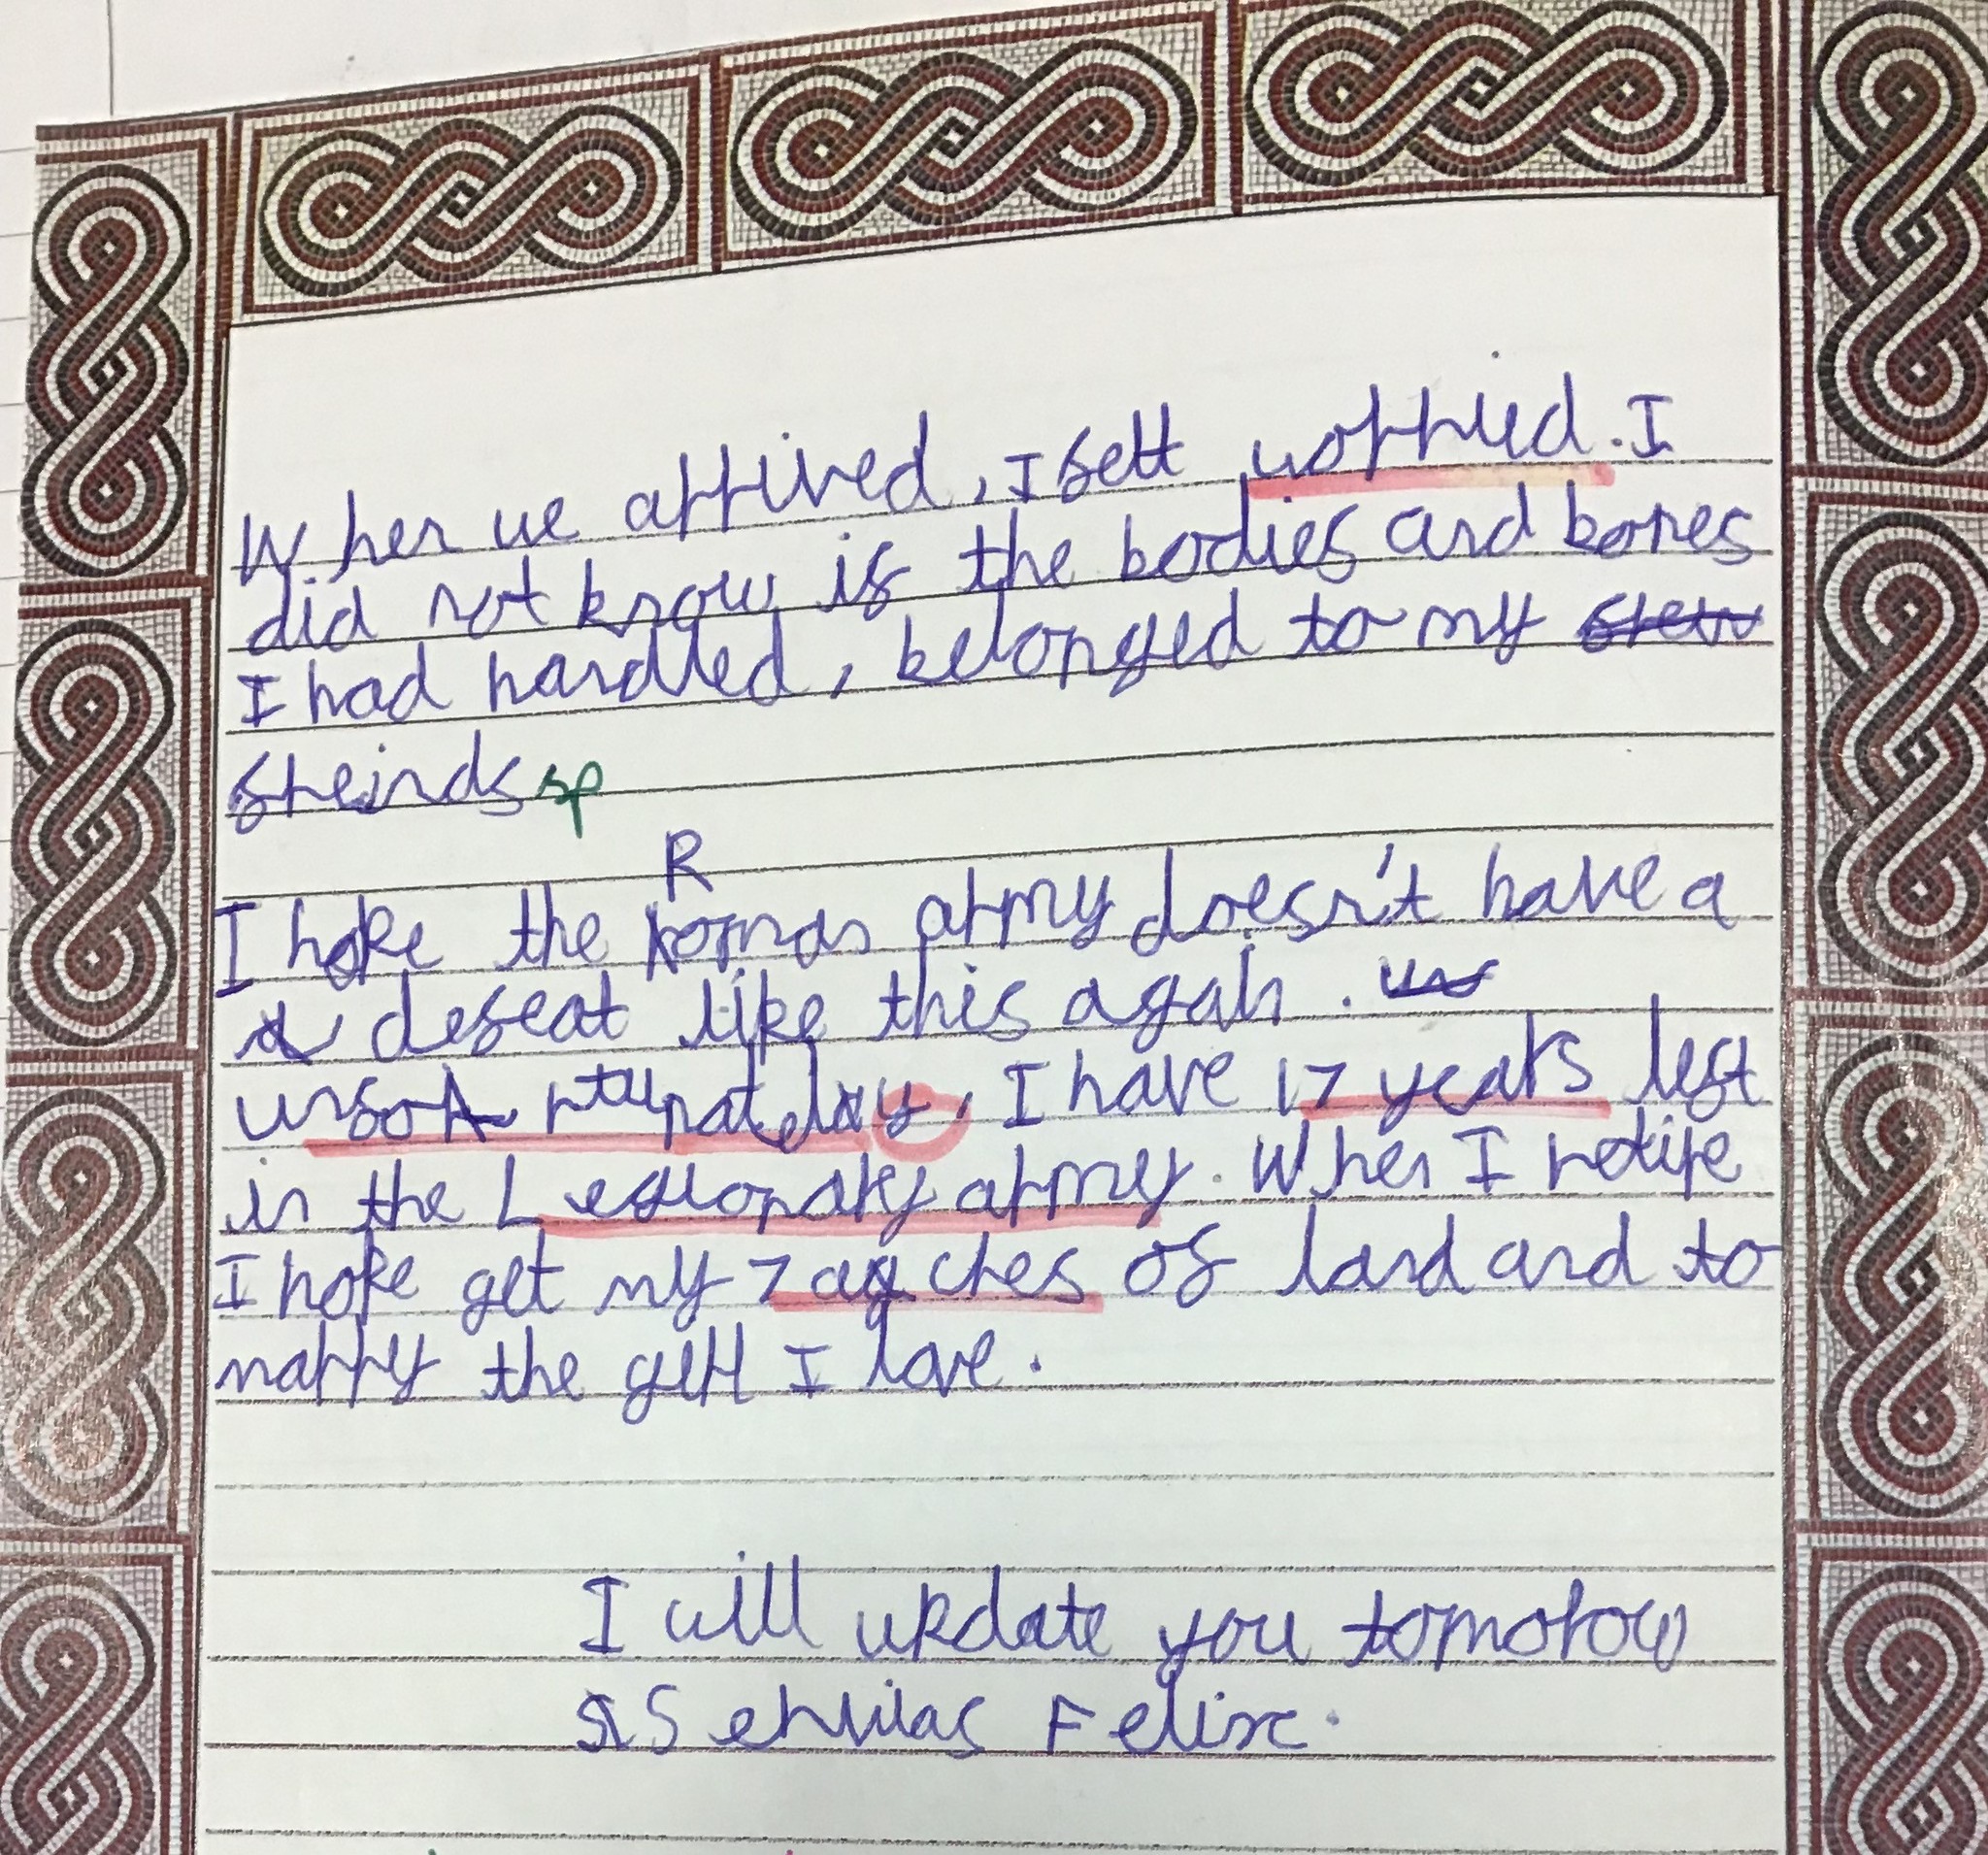 When we arrived, I felt worried. I
did not know if the bodies and bones
I had handled, belonged to my
freinds sp
R
I hope the roman army doesn't have a
a defeat like this again. un
unfortunatelay, I have 17 years left
in the Legionary army. When I retire
I hope get my 7 acches of land and to
marry the girl I love.
I will update you tomorow
Servilas Felix.